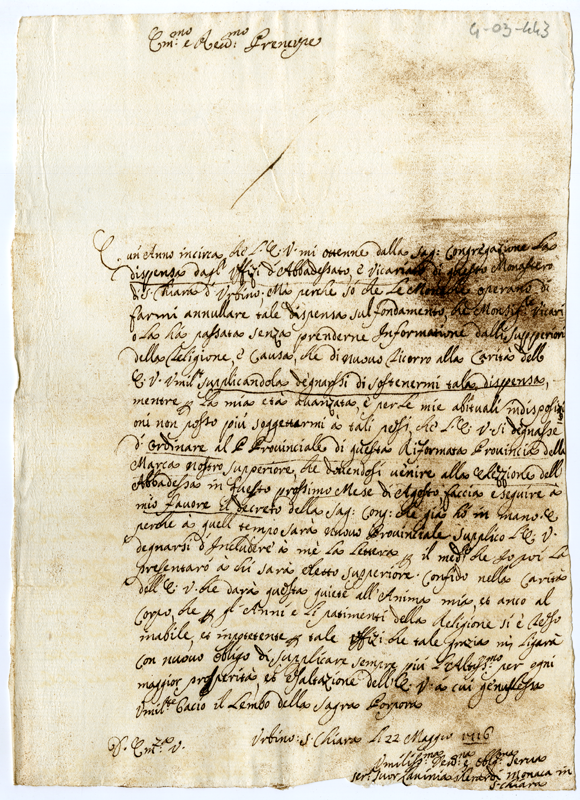 4-03-443
Em:mo e Reu:mo Prencipe
È un'Anno incirca, che L'E: V: mi ottenne dalla Sag: Congregazione La
dispensa dagl'Uffizi d'Abbadessato, e Vicariato di questo Monastero
di S. Chiara d'Urbino: Mà perche sò che Le Monache operano di
farmi annullare tale dispensa sul fondamento, che Monsig:re Vicari
o La hà passata senza prenderne Informatione dalli Supperiori
della Religione, è Causa, che di nuouo ricorro alla Carità dell'
E: V: Vmil:te supplicandola degnarsi di sostenermi tale dispensa,
mentre La mia età auanzata, e per le mie abituali indisposizi
oni non posso più soggettarmi à tali pesi, che L'E: V: si degnasse
d'ordinare al P: Prouinciale di questa Riformata Prouincia della
Marca nostro Superiore, che douendosi uenire alla Elezione dell'
Abbadessa in questo prossimo Mese di Agosto, faccia eseguire à
mio fauore il decreto della Sag: Cong: che già hò in mano. E
perche à quell tempo sarà nuouo Prouinciale supplico L'E: V:
degnarsi d'Includere à mè La Lettera il med:mo che Io poi La
presentarò à chi sarà eletto superiore. Confido nella Carità
dell'E: V: che darà questa quiete all'Anima mia, et anco al
Corpo, che gl'Anni e Li patimenti della Religione si è reso
inabile, et impotente tale Uffizi che tale grazia mi Ligarà
con nuouo obligo di supplicare sempre più l'Altiss:mo per ogni
maggior prosperità, et Esaltazione dell'E: V: à cui genuflessa
Vmil:te bacio il Lembo della Sagra Porpora
D: V: Em:za V:
Urbino: S: Chiara Li 22 Maggio 1716
Vmiliss:ma Deu:ma e oblig:ma Serua
Suor Monaca in
S: Chiara